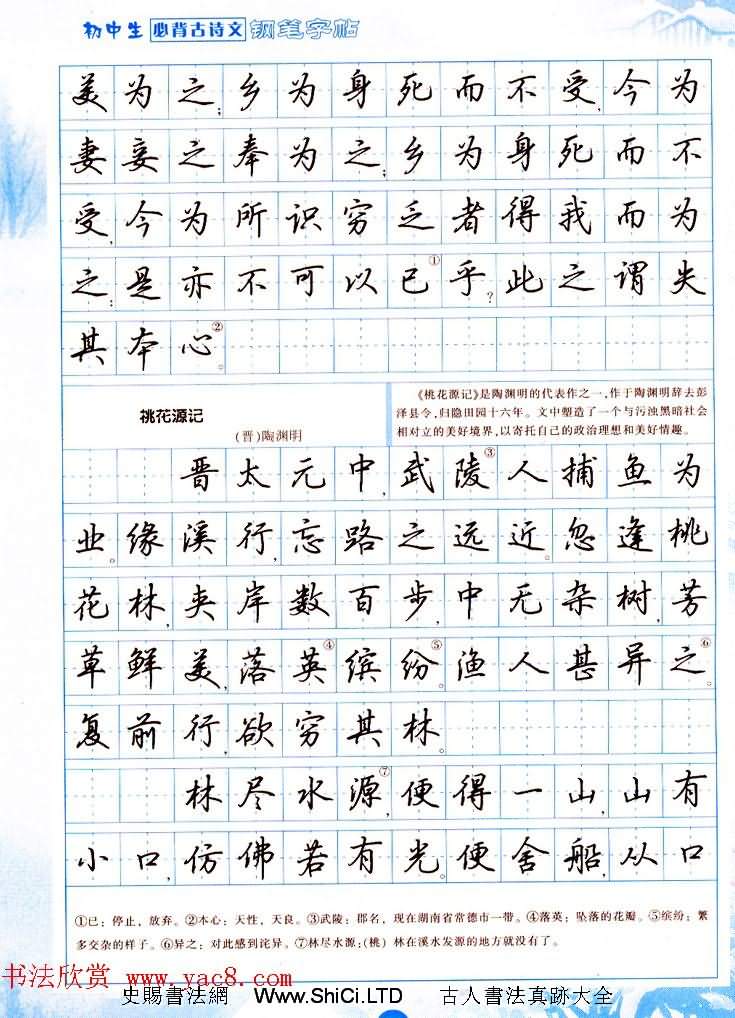 初中生 必背古诗文 钢笔字帖
美为之；乡为身死而不受，今为
妻妾之奉为之；乡为身死而不
受，今为所识穷乏者得我而为
之；是亦不可以已①乎？此之谓失
其本心②。
桃花源记
（晋）陶渊明
《桃花源记》是陶渊明的代表作之一，作于陶渊明辞去彭
泽县令，归隐田园十六年。文中塑造了一个与污浊黑暗社会
相对立的美好境界，以寄托自己的政治理想和美好情趣。
晋太元中，武陵③人捕鱼为
业。缘溪行，忘路之远近。忽逢桃
花林，夹岸数百步，中无杂树，芳
草鲜美，落英④缤纷⑤。渔人甚异之⑥。
复前行，欲穷其林。
林尽水源⑦，便得一山，山有
小口，仿佛若有光。便舍船，从口
①已：停止，放弃。②本心：天性，天良。③武陵：郡名，现在湖南省常德市一带。④落英：坠落的花瓣。⑤缤纷：繁
多交杂的样子。⑥异之：对此感到诧异。⑦林尽水源：（桃）林在溪水发源的地方就没有了。
书法欣赏 www.yac8.com
史賜書法網 Www.ShiCi.LTD 古人書法真跡大全